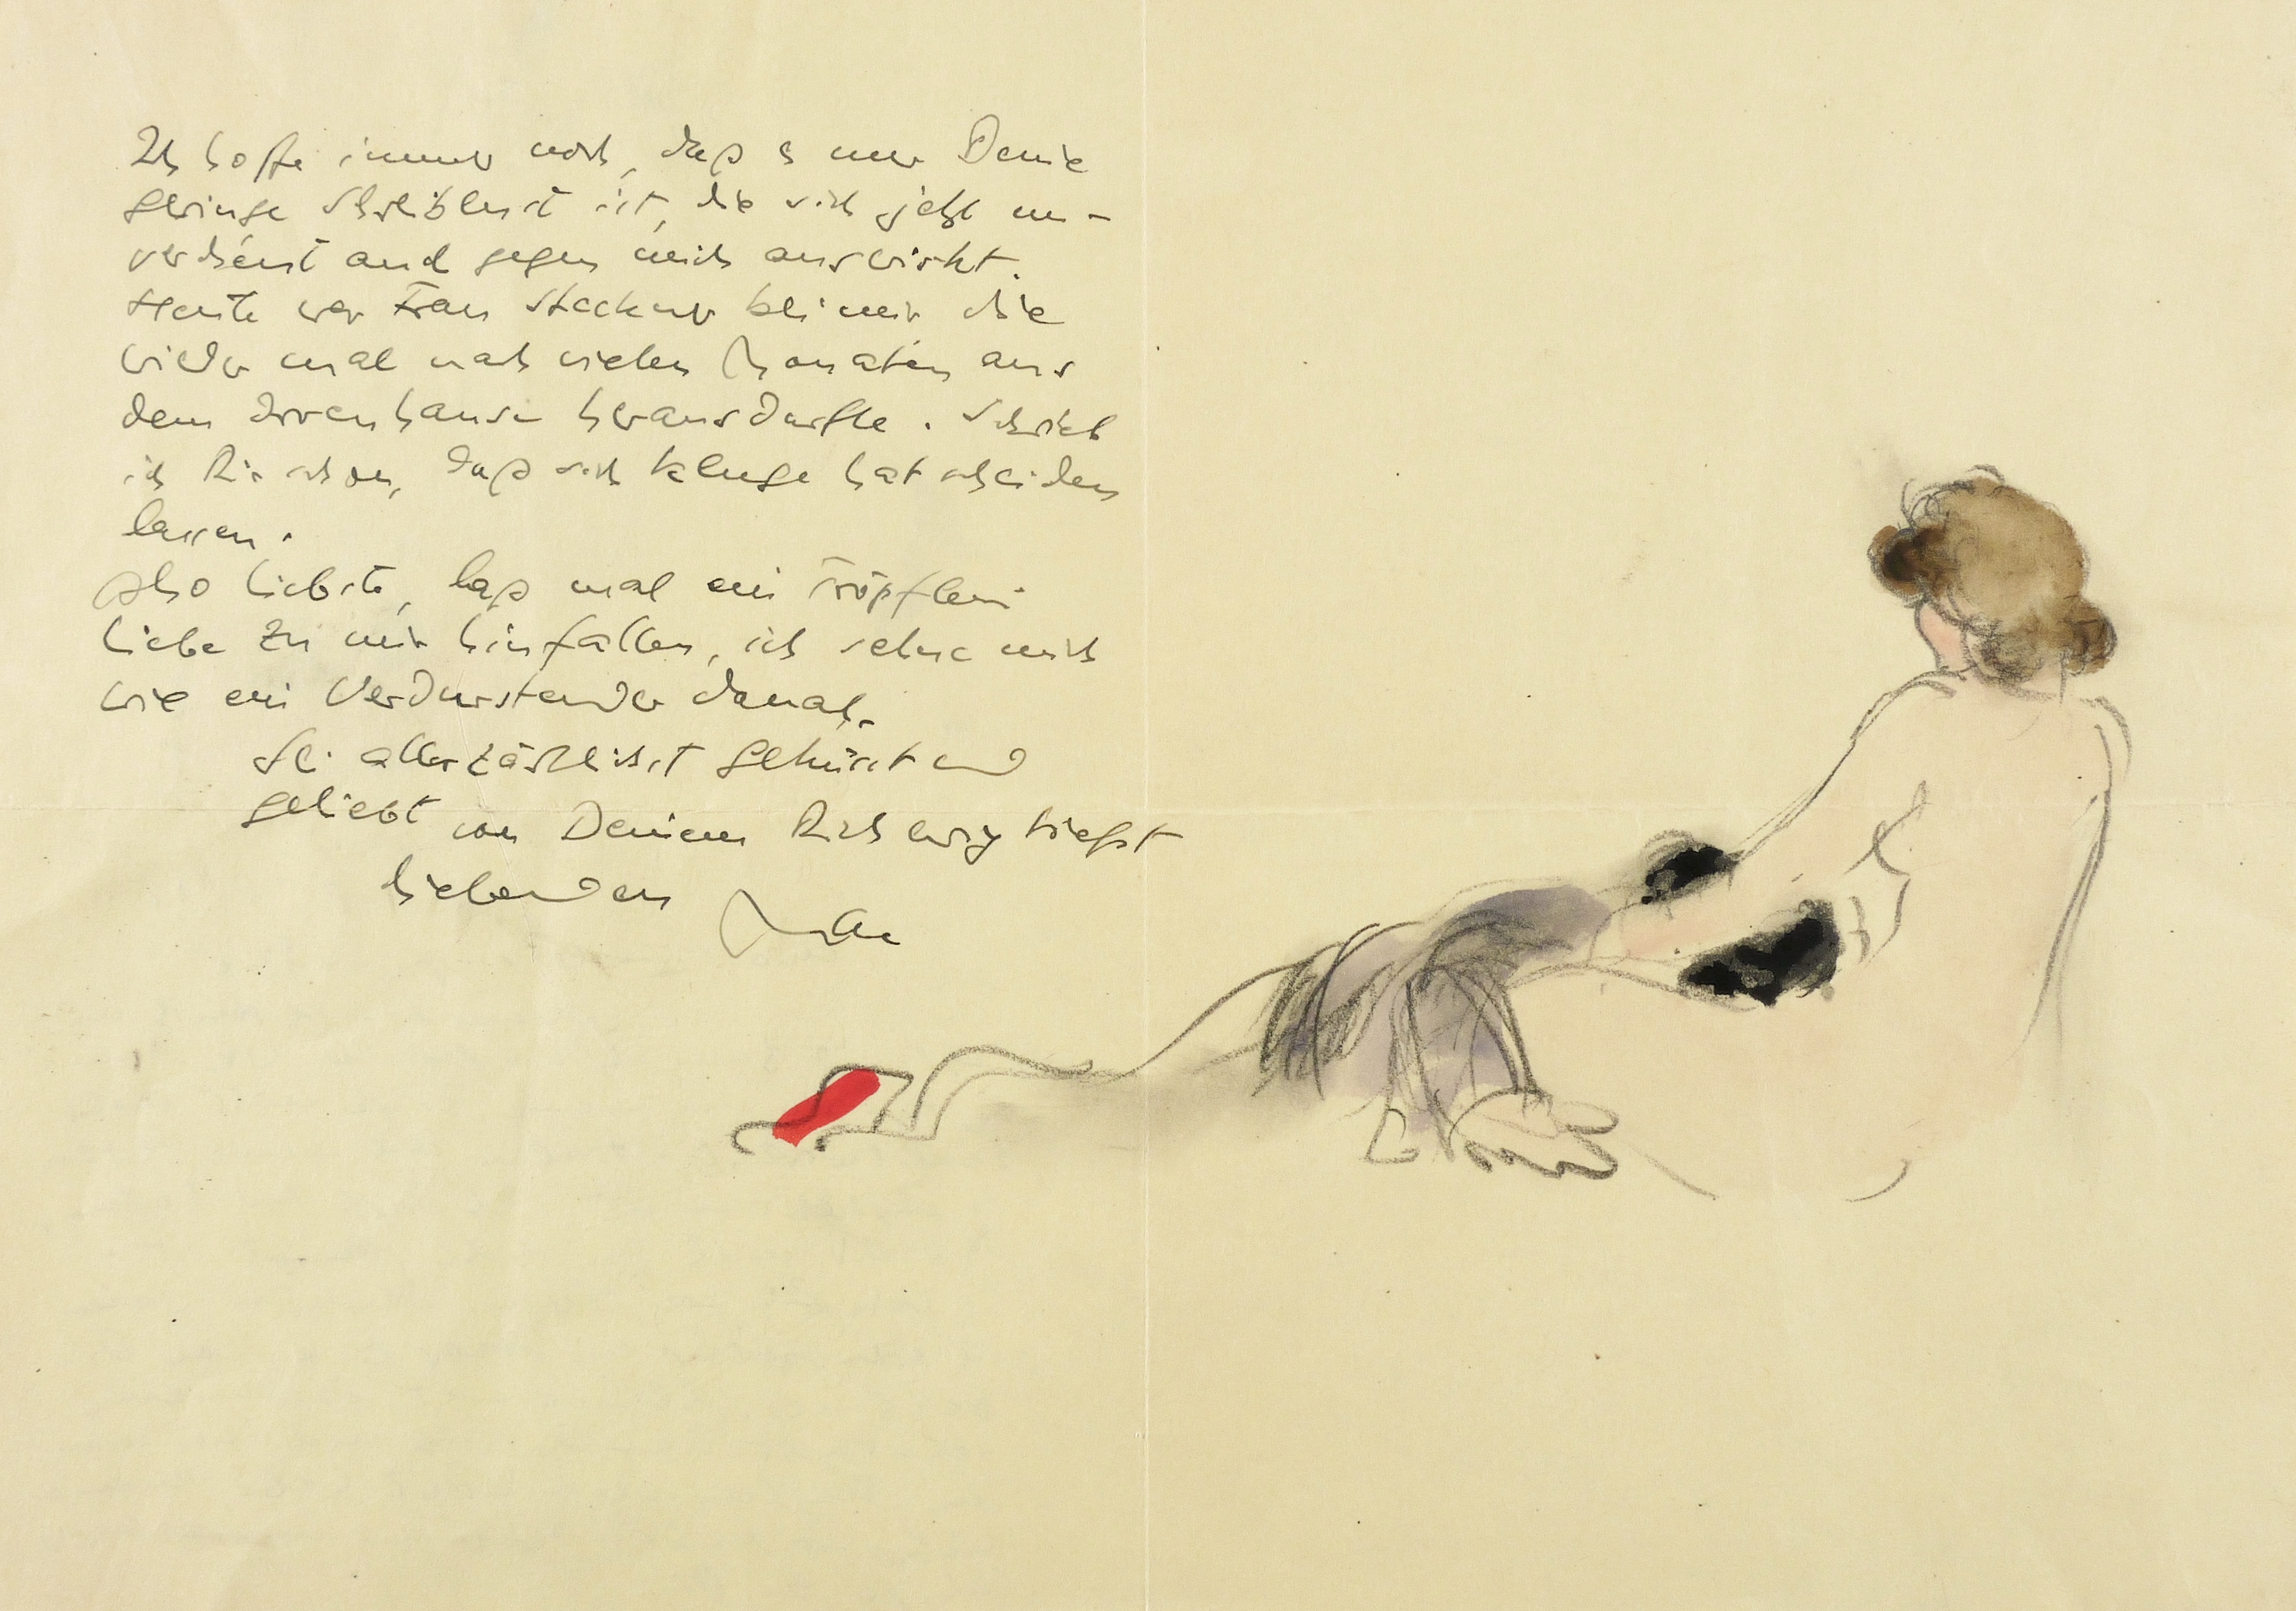 Ich hoffe immer noch, daß es nur Deine
geringe Schreiblust ist, die sich jetzt un-
verdient auch gegen mich auswirkt.
Heute war Frau Steckner bei mir die
wieder mal nach vielen Monaten aus
dem Irrenhause herausdurfte. Schrieb
ich Dir schon, daß sich Kluge hat scheiden
lassen.
Also Liebste, laß mal ein Tröpflein
Liebe zu mir hinfallen, ich sehne mich
wie ein Verdurstender danach.
Sei allerzärtlichst geküsst und
geliebt von Deinem Dich ewig tiefst
liebenden